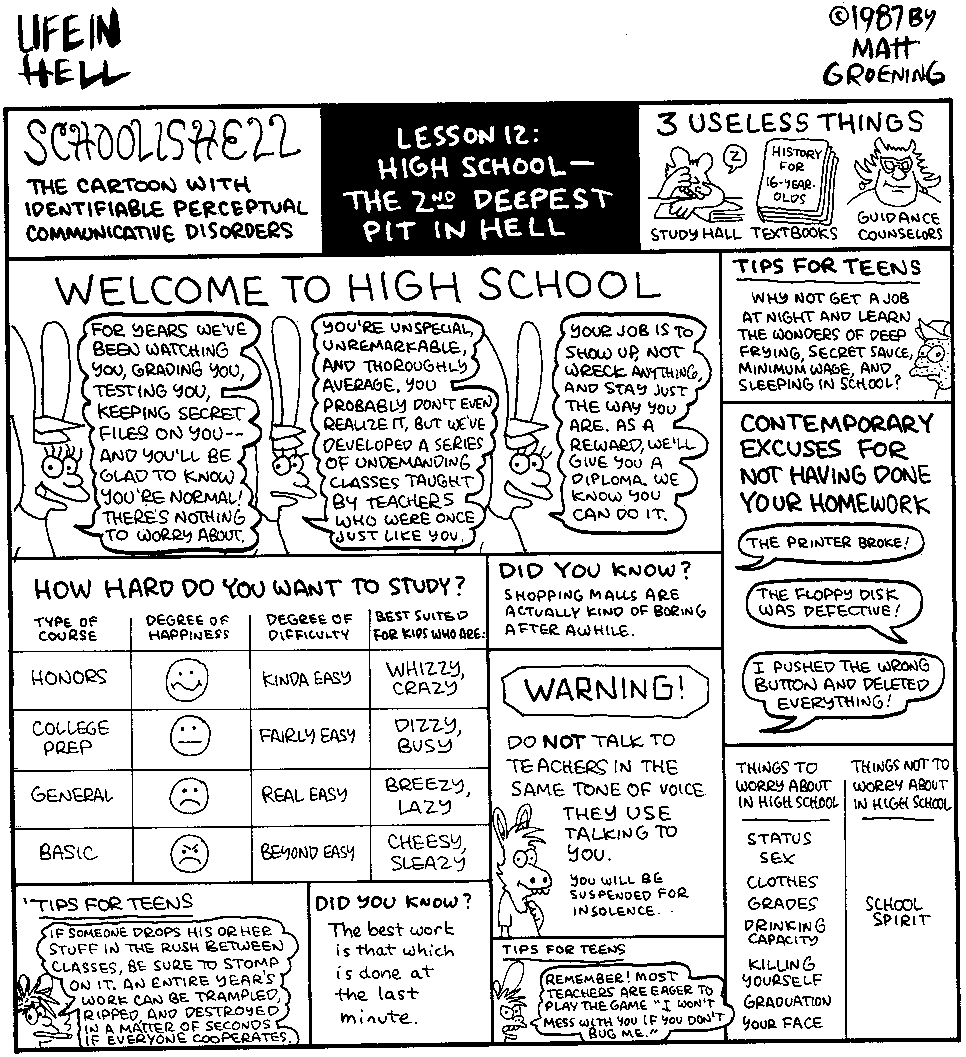 LIFE IN
HELL
©1987 BY
MATT
GROENING
SCHOOL IS HELL
THE CARTOON WITH
IDENTIFIABLE PERCEPTUAL
COMMUNICATIVE DISORDERS
LESSON 12:
HIGH SCHOOL—
THE 2ND DEEPEST
PIT IN HELL
3 USELESS THINGS
Z
STUDY HALL
HISTORY
FOR
16-YEAR-
OLDS
TEXTBOOKS
GUIDANCE
COUNSELORS
WELCOME TO HIGH SCHOOL
FOR YEARS WE'VE
BEEN WATCHING
YOU, GRADING YOU,
TESTING YOU,
KEEPING SECRET
FILES ON YOU--
AND YOU'LL BE
GLAD TO KNOW
YOU'RE NORMAL!
THERE'S NOTHING
TO WORRY ABOUT.
YOU'RE UNSPECIAL,
UNREMARKABLE,
AND THOROUGHLY
AVERAGE. YOU
PROBABLY DON'T EVEN
REALIZE IT, BUT WE'VE
DEVELOPED A SERIES
OF UNDEMANDING
CLASSES TAUGHT
BY TEACHERS
WHO WERE ONCE
JUST LIKE YOU.
YOUR JOB IS TO
SHOW UP, NOT
WRECK ANYTHING,
AND STAY JUST
THE WAY YOU
ARE. AS A
REWARD, WE'LL
GIVE YOU A
DIPLOMA. WE
KNOW YOU
CAN DO IT.
TIPS FOR TEENS
WHY NOT GET A JOB
AT NIGHT AND LEARN
THE WONDERS OF DEEP
FRYING, SECRET SAUCE,
MINIMUM WAGE, AND
SLEEPING IN SCHOOL?
CONTEMPORARY
EXCUSES FOR
NOT HAVING DONE
YOUR HOMEWORK
THE PRINTER BROKE!
THE FLOPPY DISK
WAS DEFECTIVE!
I PUSHED THE WRONG
BUTTON AND DELETED
EVERYTHING!
HOW HARD DO YOU WANT TO STUDY?
TYPE OF
COURSE
DEGREE OF
HAPPINESS
DEGREE OF
DIFFICULTY
BEST SUITED
FOR KIDS WHO ARE:
HONORS
KINDA EASY
WHIZZY,
CRAZY
COLLEGE
PREP
FAIRLY EASY
DIZZY,
BUSY
GENERAL
REAL EASY
BREEZY,
LAZY
BASIC
BEYOND EASY
CHEESY,
SLEAZY
DID YOU KNOW?
SHOPPING MALLS ARE
ACTUALLY KIND OF BORING
AFTER AWHILE.
WARNING!
DO NOT TALK TO
TEACHERS IN THE
SAME TONE OF VOICE
THEY USE
TALKING TO
YOU.
YOU WILL BE
SUSPENDED FOR
INSOLENCE.
THINGS TO
WORRY ABOUT
IN HIGH SCHOOL
STATUS
SEX
CLOTHES
GRADES
DRINKING
CAPACITY
KILLING
YOURSELF
GRADUATION
YOUR FACE
THINGS NOT TO
WORRY ABOUT
IN HIGH SCHOOL
SCHOOL
SPIRIT
TIPS FOR TEENS
IF SOMEONE DROPS HIS OR HER
STUFF IN THE RUSH BETWEEN
CLASSES, BE SURE TO STOMP
ON IT. AN ENTIRE YEAR'S
WORK CAN BE TRAMPLED,
RIPPED AND DESTROYED
IN A MATTER OF SECONDS
IF EVERYONE COOPERATES.
DID YOU KNOW?
The best work
is that which
is done at
the last
minute.
TIPS FOR TEENS
REMEMBER! MOST
TEACHERS ARE EAGER TO
PLAY THE GAME "I WON'T
MESS WITH YOU IF YOU DON'T
BUG ME."